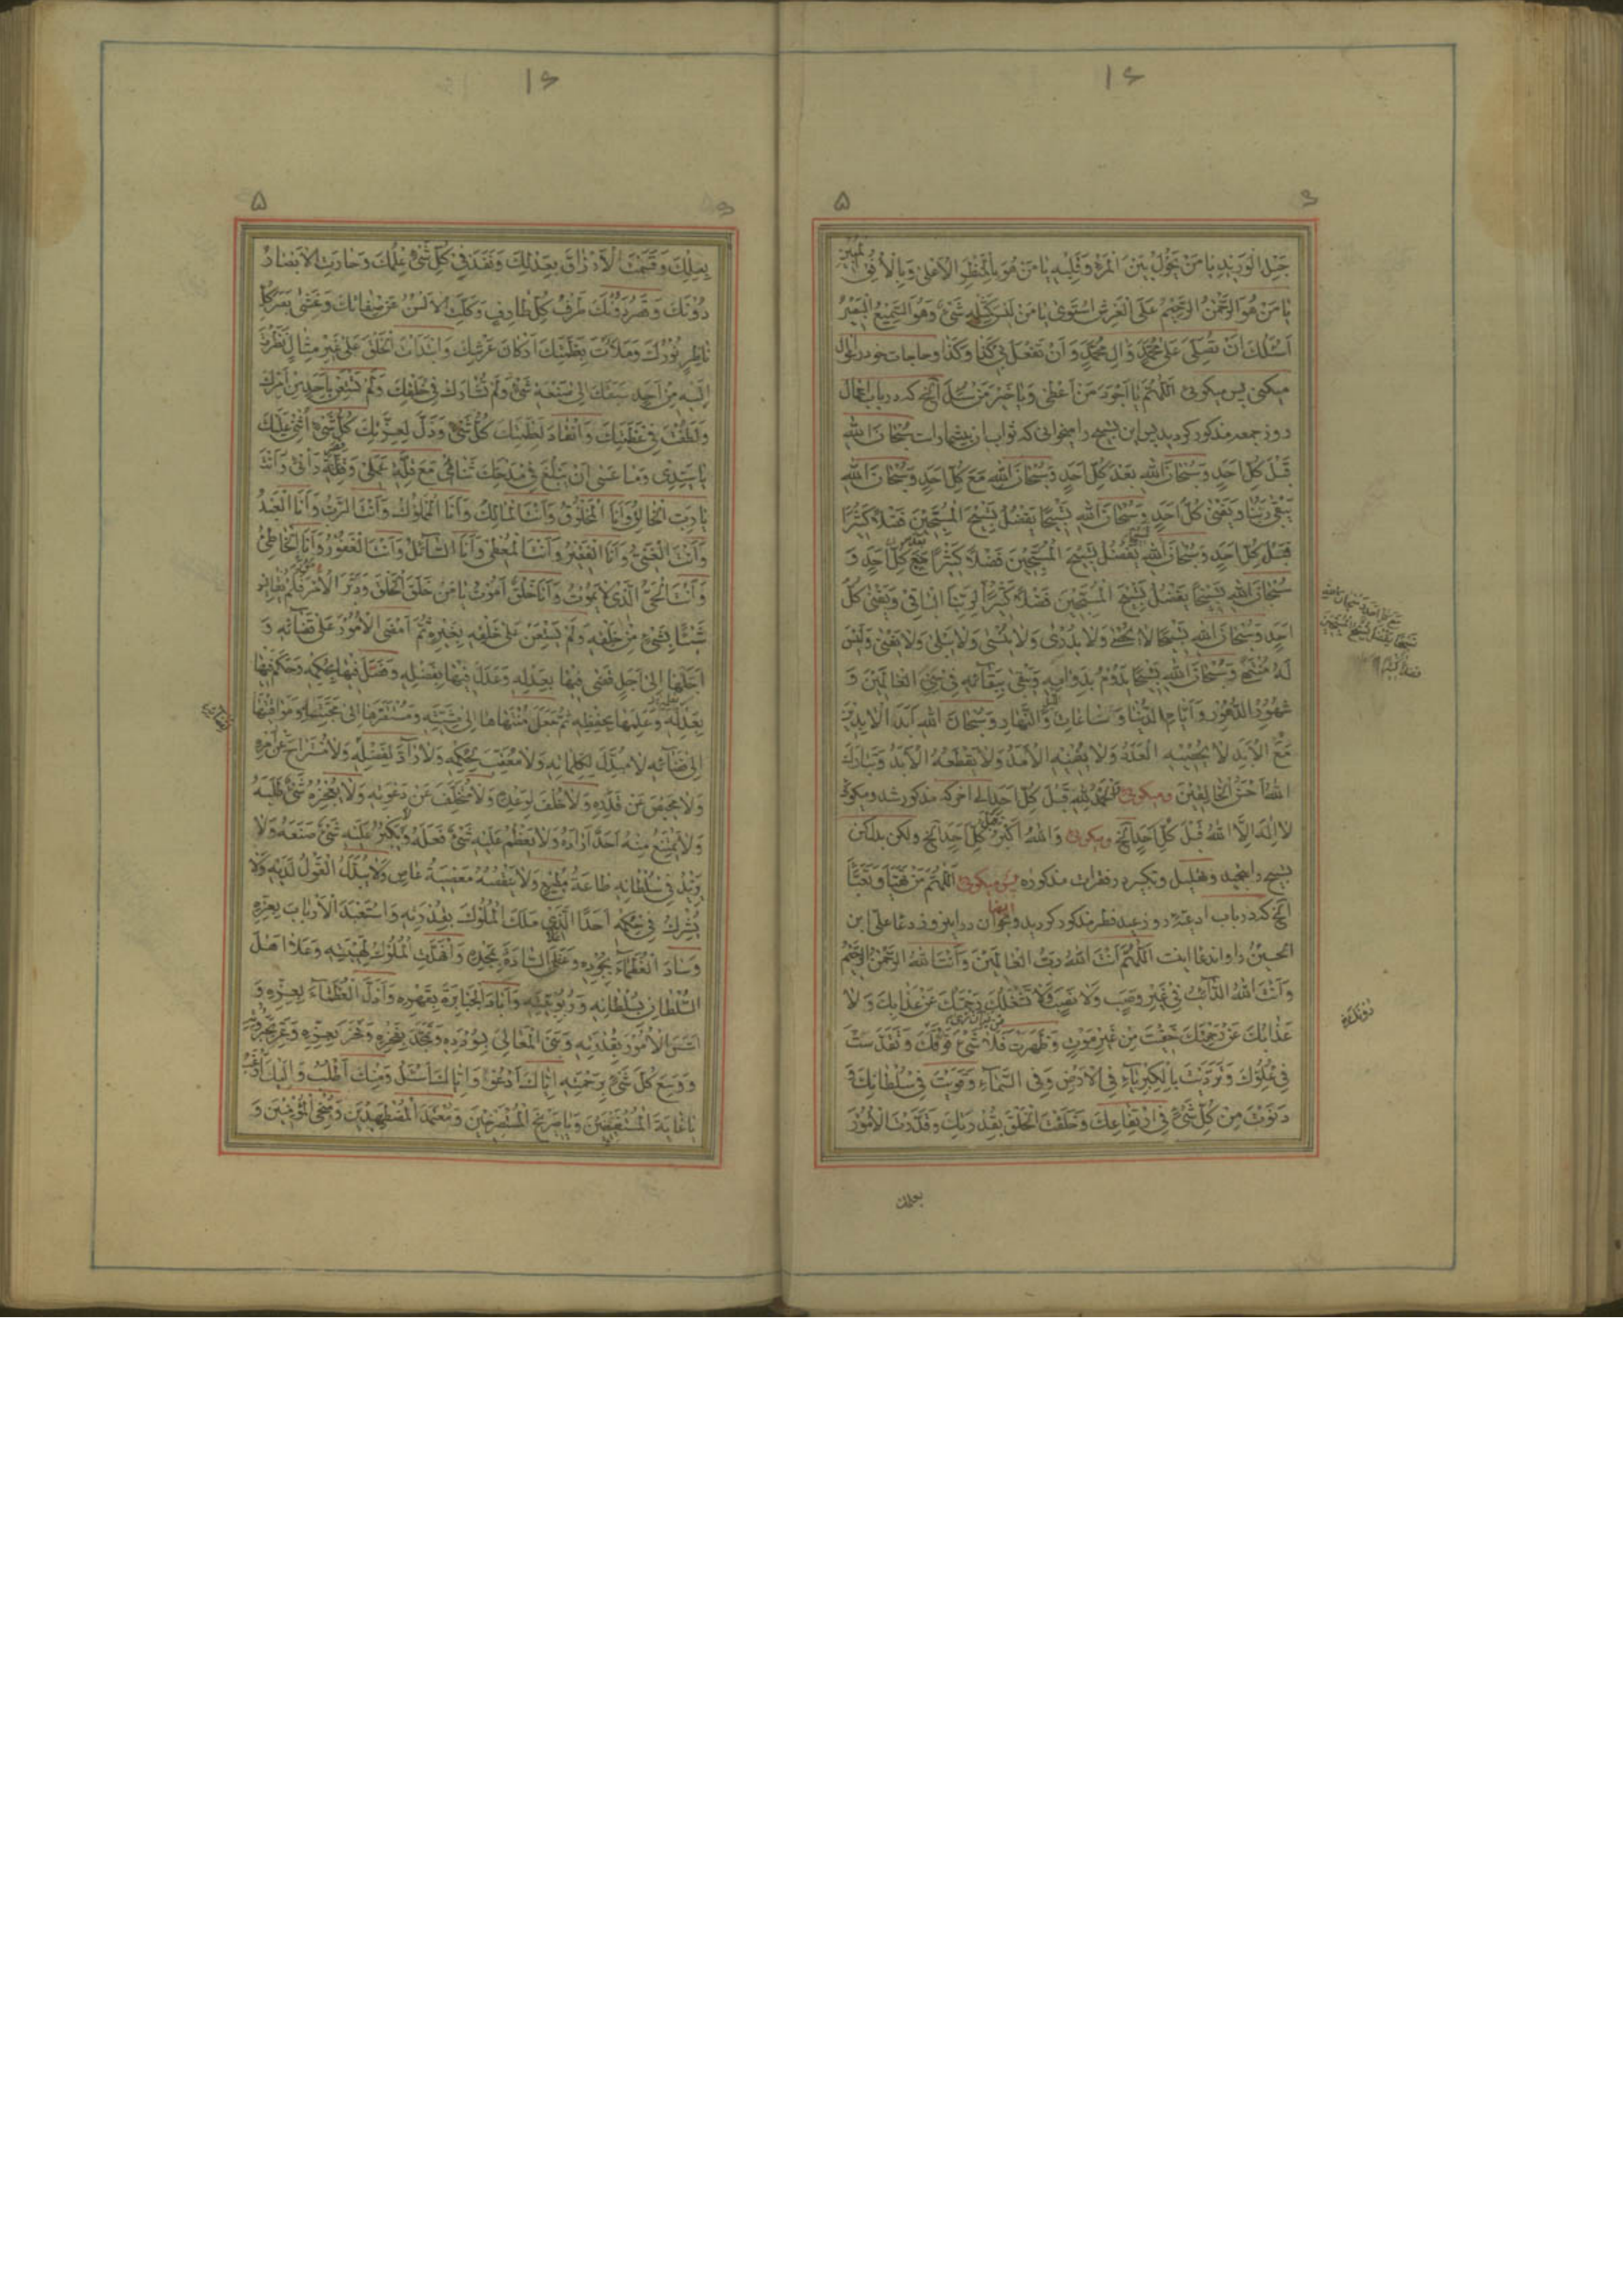 ۱۶
۶
۵
حَبْلِ الْوَرِیدِ یا مَنْ یَحُولُ بَیْنَ الْمَرْءِ وَقَلْبِهِ یا مَنْ هُوَ بِالْمَنْظَرِ الْأَعْلی وَبِالْأُفُقِ الْمُبینِ
یا مَنْ هُوَ الرَّحْمنُ الرَّحیمُ عَلَی الْعَرْشِ اسْتَوی یا مَنْ لَیْسَ کَمِثْلِهِ شَیْءٌ وَهُوَ السَّمیعُ الْبَصیرُ
اَسْئَلُكَ اَنْ تُصَلِّیَ عَلی مُحَمَّدٍ وَالِ مُحَمَّدٍ وَاَنْ تَفْعَلَ بی کَذا وَکَذا وحاجات خود را سؤال
میکنی پس میکوئی اَللّهُمَّ یا اَجْوَدَ مَنْ اَعْطی وَیا خَیْرَ مَنْ سُئِلَ الخ که در باب اعمال
روز جمعه مذکور کردید پس این تسبیح را میخوانی که ثواب ان بیشمار است سُبْحانَ اللهِ
قَبْلَ کُلِّ اَحَدٍ وَسُبْحانَ اللهِ بَعْدَ کُلِّ اَحَدٍ وَسُبْحانَ اللهِ مَعَ کُلِّ اَحَدٍ وَسُبْحانَ اللهِ
یَبْقی رَبُّنا وَیَفْنی کُلُّ اَحَدٍ وَسُبْحانَ اللهِ تَسْبیحًا یَفْضُلُ تَسْبیحَ الْمُسَبِّحینَ فَضْلًا کَثیرًا
قَبْلَ کُلِّ اَحَدٍ وَسُبْحانَ اللهِ یَفْضُلُ تَسْبیحَ الْمُسَبِّحینَ فَضْلًا کَثیرًا بَعْدَ کُلِّ اَحَدٍ وَ
سُبْحانَ اللهِ تَسْبیحًا یَفْضُلُ تَسْبیحَ الْمُسَبِّحینَ فَضْلًا کَثیرًا لِرَبِّنَا الْباقی وَیَفْنی کُلُّ
اَحَدٍ وَسُبْحانَ اللهِ تَسْبیحًا لا یُحْصی وَلا یُدْری وَلا یُنْسی وَلا یَبْلی وَلا یَفْنی وَلَیْسَ
لَهُ مُنْتَهی وَسُبْحانَ اللهِ تَسْبیحًا یَدُومُ بِدَوامِهِ وَیَبْقی بِبَقائِهِ فی سِنِیِّ الْعالَمینَ وَ
شُهُورِ الدُّهُورِ وَاَیّامِ الدُّنْیا وَساعاتِ اللَّیْلِ وَالنَّهارِ وَسُبْحانَ اللهِ اَبَدَ الْابِدینَ
مَعَ الْاَبَدِ لا یُحْصیهِ الْعَدَدُ وَلا یُفْنیهِ الْاَمَدُ وَلا یَقْطَعُهُ الْاَبَدُ وَتَبارَكَ
اللهُ اَحْسَنُ الْخالِقینَ ومیکوئی اَلْحَمْدُ لِلهِ قَبْلَ کُلِّ اَحَدٍ الی آخر که مذکور شد ومیکوئی
لا اِلهَ اِلَّا اللهُ قَبْلَ کُلِّ اَحَدٍ الخ ومیکوئی وَاللهُ اَکْبَرُ قَبْلَ کُلِّ اَحَدٍ الخ ولکن بدل کن
تسبیح را بتحمید وتهلیل وتکبیر در فقرات مذکوره پس میکوئی اَللّهُمَّ مَنْ تَهَیَّأَ وَتَعَبَّأَ
الخ که در باب ادعیه روز عید فطر مذکور کردید وبخوان در این روز دعا علی ابن
الحسین را وان دعا اینست اَللّهُمَّ اَنْتَ اللهُ رَبُّ الْعالَمینَ وَاَنْتَ اللهُ الرَّحْمنُ الرَّحیمُ
وَاَنْتَ اللهُ الدّائِبُ فی غَیْرِ وَصَبٍ وَلا نَصَبٍ وَلا تَشْغَلُكَ رَحْمَتُكَ عَنْ عَذابِكَ وَلا
عَذابُكَ عَنْ رَحْمَتِكَ خَفیتَ مِنْ غَیْرِ مَوْتٍ وَظَهَرْتَ فَلا شَیْءَ فَوْقَكَ وَتَقَدَّسْتَ
فی عُلُوِّكَ وَتَرَدَّیْتَ بِالْکِبْرِیاءِ فِی الْاَرْضِ وَفِی السَّماءِ وَقَوِیتَ فی سُلْطانِكَ وَ
دَنَوْتَ مِنْ کُلِّ شَیْءٍ فِی ارْتِفاعِكَ وَخَلَقْتَ الْخَلْقَ بِقُدْرَتِكَ وَقَدَّرْتَ الْاُمُورَ
بعلمك
۱۶
۵
بِعِلْمِكَ وَقَسَمْتَ الْاَرْزاقَ بِعَدْلِكَ وَنَفَذَ فی کُلِّ شَیْءٍ عِلْمُكَ وَحارَتِ الْاَبْصارُ
دُونَكَ وَقَصُرَ دُونَكَ طَرْفُ کُلِّ طارِفٍ وَکَلَّتِ الْاَلْسُنُ عَنْ صِفاتِكَ وَغَشِیَ بَصَرَ کُلِّ
ناظِرٍ نُورُكَ وَمَلَأْتَ بِعَظَمَتِكَ اَرْکانَ عَرْشِكَ وَابْتَدَأْتَ الْخَلْقَ عَلی غَیْرِ مِثالٍ نَظَرْتَ
اِلَیْهِ مِنْ اَحَدٍ سَبَقَكَ اِلی صَنْعَةِ شَیْءٍ وَلَمْ تُشارَكْ فی خَلْقِكَ وَلَمْ تَسْتَعِنْ بِاَحَدٍ فی اَمْرِكَ
وَلَطُفْتَ فی عَظَمَتِكَ وَانْقادَ لِعَظَمَتِكَ کُلُّ شَیْءٍ وَذَلَّ لِعِزَّتِكَ کُلُّ شَیْءٍ اُثْنی عَلَیْكَ
یا سَیِّدی وَما عَسی اَنْ یَبْلُغَ فی مِدْحَتِكَ ثَنائی مَعَ قِلَّةِ عَمَلی وَقِلَّةِ رَأْیی وَاَنْتَ
یا رَبِّ الْخالِقُ وَاَنَا الْمَخْلُوقُ وَاَنْتَ الْمالِكُ وَاَنَا الْمَمْلُوكُ وَاَنْتَ الرَّبُّ وَاَنَا الْعَبْدُ
وَاَنْتَ الْغَنِیُّ وَاَنَا الْفَقیرُ وَاَنْتَ الْمُعْطی وَاَنَا السّائِلُ وَاَنْتَ الْغَفُورُ وَاَنَا الْخاطِئُ
وَاَنْتَ الْحَیُّ الَّذی لا یَمُوتُ وَاَنَا خَلْقٌ اَمُوتُ یا مَنْ خَلَقَ الْخَلْقَ وَدَبَّرَ الْاُمُورَ فَلَمْ یُقایِسْ
شَیْئًا بِشَیْءٍ مِنْ خَلْقِهِ وَلَمْ یَسْتَعِنْ عَلی خَلْقِهِ بِغَیْرِهِ ثُمَّ اَمْضَی الْاُمُورَ عَلی قَضائِهِ وَ
اَجَّلَها اِلی اَجَلٍ قَضی فیها بِعَدْلِهِ وَعَدَلَ فیها بِفَضْلِهِ وَفَصَلَ فیها بِحُکْمِهِ وَحَکَمَ فیها
بِعَدْلِهِ وَعَلِمَها بِحِفْظِهِ ثُمَّ جَعَلَ مُنْتَهاها اِلی مَشِیَّتِهِ وَمُسْتَقَرَّها اِلی مَحَبَّتِهِ وَمَواقیتَها
اِلی قَضائِهِ لا مُبَدِّلَ لِکَلِماتِهِ وَلا مُعَقِّبَ لِحُکْمِهِ وَلا رادَّ لِفَضْلِهِ وَلا مُسْتَراحَ عَنْ اَمْرِهِ
وَلا مَحیصَ عَنْ قَدَرِهِ وَلا خُلْفَ لِوَعْدِهِ وَلا مُتَخَلِّفَ عَنْ دَعْوَتِهِ وَلا یُعْجِزُهُ شَیْءٌ طَلَبَهُ
وَلا یَمْتَنِعُ مِنْهُ اَحَدٌ اَرادَهُ وَلا یَعْظُمُ عَلَیْهِ شَیْءٌ فَعَلَهُ وَلا یَکْبُرُ عَلَیْهِ شَیْءٌ صَنَعَهُ وَلا
یَزیدُ فی سُلْطانِهِ طاعَةُ مُطیعٍ وَلا یَنْقُصُهُ مَعْصِیَةُ عاصٍ وَلا یُبَدَّلُ الْقَوْلُ لَدَیْهِ وَلا
یُشْرِكُ فی حُکْمِهِ اَحَدًا الَّذی مَلَكَ الْمُلُوكَ بِقُدْرَتِهِ وَاسْتَعْبَدَ الْاَرْبابَ بِعِزِّهِ
وَسادَ الْعُظَماءَ بِجُودِهِ وَعَلَا السّادَةَ بِمَجْدِهِ وَانْهَدَّتِ الْمُلُوكُ لِهَیْبَتِهِ وَعَلا اَهْلَ
السُّلْطانِ بِسُلْطانِهِ وَرُبُوبِیَّتِهِ وَاَبادَ الْجَبابِرَةَ بِقَهْرِهِ وَاَذَلَّ الْعُظَماءَ بِعِزِّهِ وَ
اَسَّسَ الْاُمُورَ بِقُدْرَتِهِ وَبَنَی الْمَعالِیَ بِسُؤْدَدِهِ وَتَمَجَّدَ بِفَخْرِهِ وَفَخَرَ بِعِزِّهِ وَعَزَّ بِجَبَرُوتِهِ
وَوَسِعَ کُلَّ شَیْءٍ بِرَحْمَتِهِ اِیّاكَ اَدْعُو وَاِیّاكَ اَسْئَلُ وَمِنْكَ اَطْلُبُ وَاِلَیْكَ اَرْغَبُ
یا غایَةَ الْمُسْتَضْعَفینَ وَیا صَریخَ الْمُسْتَصْرِخینَ وَمُعْتَمَدَ الْمُضْطَهَدینَ وَمُنْجِیَ الْمُؤْمِنینَ وَ